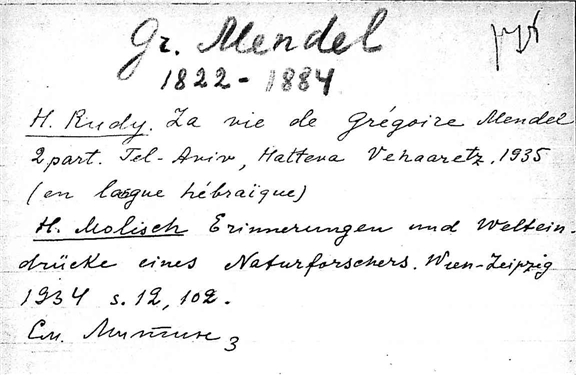 Gr. Mendel
1822-1884
H. Rudy. La vie de Grégoire Mendel
2 part. Tel-Aviv, Hatteva Vehaaretz, 1935
(en langue hébraïque)
H. Molisch Erinnerungen und Weltein-
drücke eines Naturforschers. Wien-Leipzig
1934 s. 12, 102.
См.